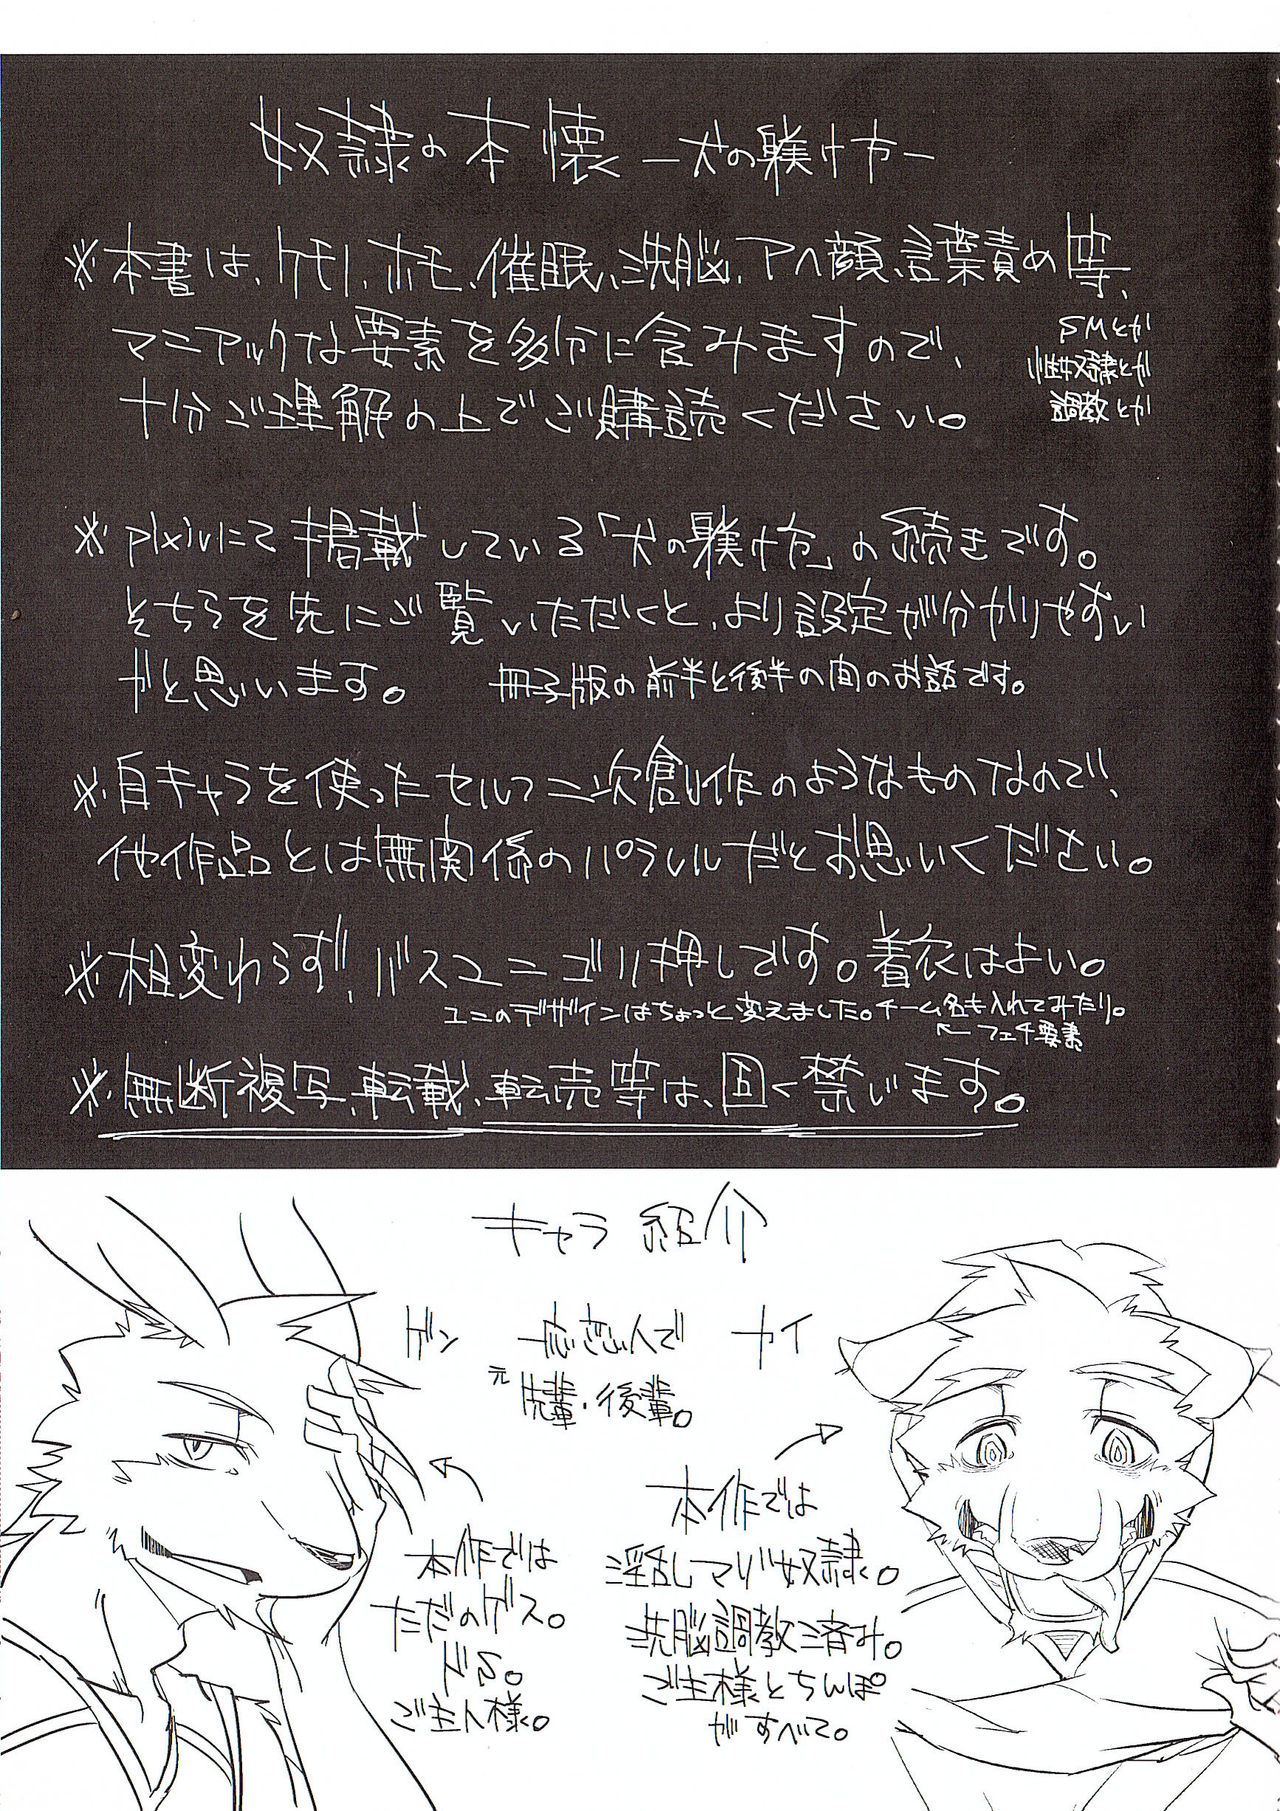 奴隷の本懐 ー犬の躾け方ー
※本書は、ケモノ、ホモ、催眠、洗脳、アヘ顔、言葉責め等、
SMとか
性奴隷とか
調教とか
マニアックな要素を多分に含みますので、
十分ご理解の上でご購読ください。
※pixivにて掲載している「犬の躾け方」の続きです。
そちらを先にご覧いただくと、より設定が分かりやすい
かと思います。 冊子版の前半と後半の間のお話です。
※自キャラを使ったセルフ二次創作のようなものなので、
他作品とは無関係のパラレルだとお思いください。
※相変わらず、バスユニゴリ押しです。着衣はよい。
ユニのデザインはちょっと変えました。チーム名も入れてみたり。
←フェチ要素
※無断複写、転載、転売等は、固く禁じます。
キャラ紹介
ゲン
一応恋人で
元
先輩・後輩。
カイ
本作では
ただのゲス。
ドS。
ご主人様。
本作では
淫乱しマゾ奴隷。
洗脳調教済み。
ご主様とちんぽ
がすべて。